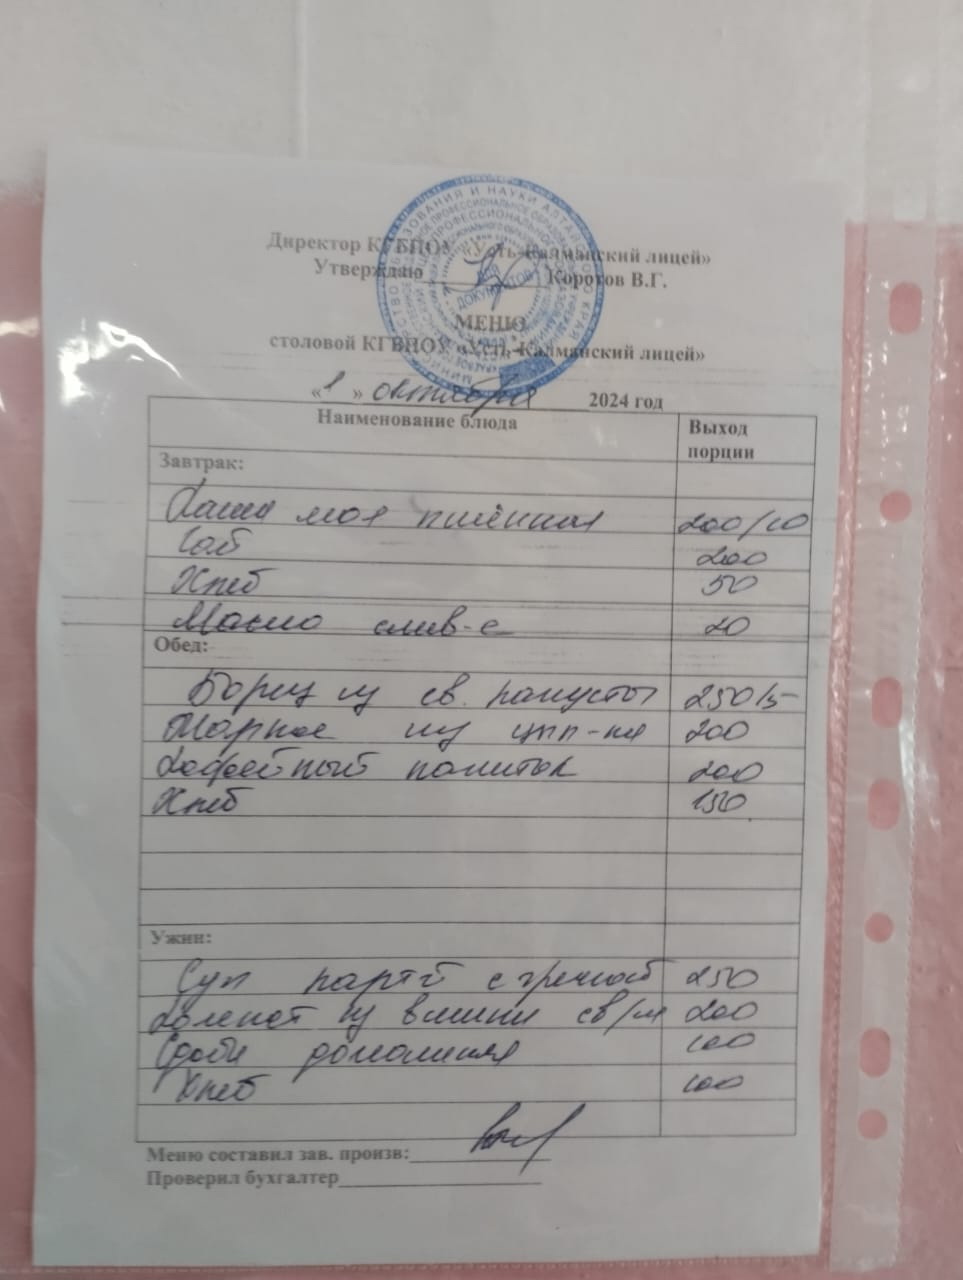 Директор КГБПОУ «Усть-Калманский лицей»
Утверждаю Коротов В.Г.
МЕНЮ
столовой КГБПОУ «Усть-Калманский лицей»
«1» октября 2024 год
Наименование блюда Выход порции
Завтрак:
Каша мол пшённая 200/10
Чай 200
Хлеб 50
Масло слив-е 20
Обед:
Борщ из св. капусты 250/5
Жаркое из цып-ка 200
Кофейный напиток 200
Хлеб 150
Ужин:
Суп карт с гречкой 250
Компот из вишни св/м 200
Сдоба домашняя 100
Хлеб 100
Меню составил зав. произв:
Проверил бухгалтер